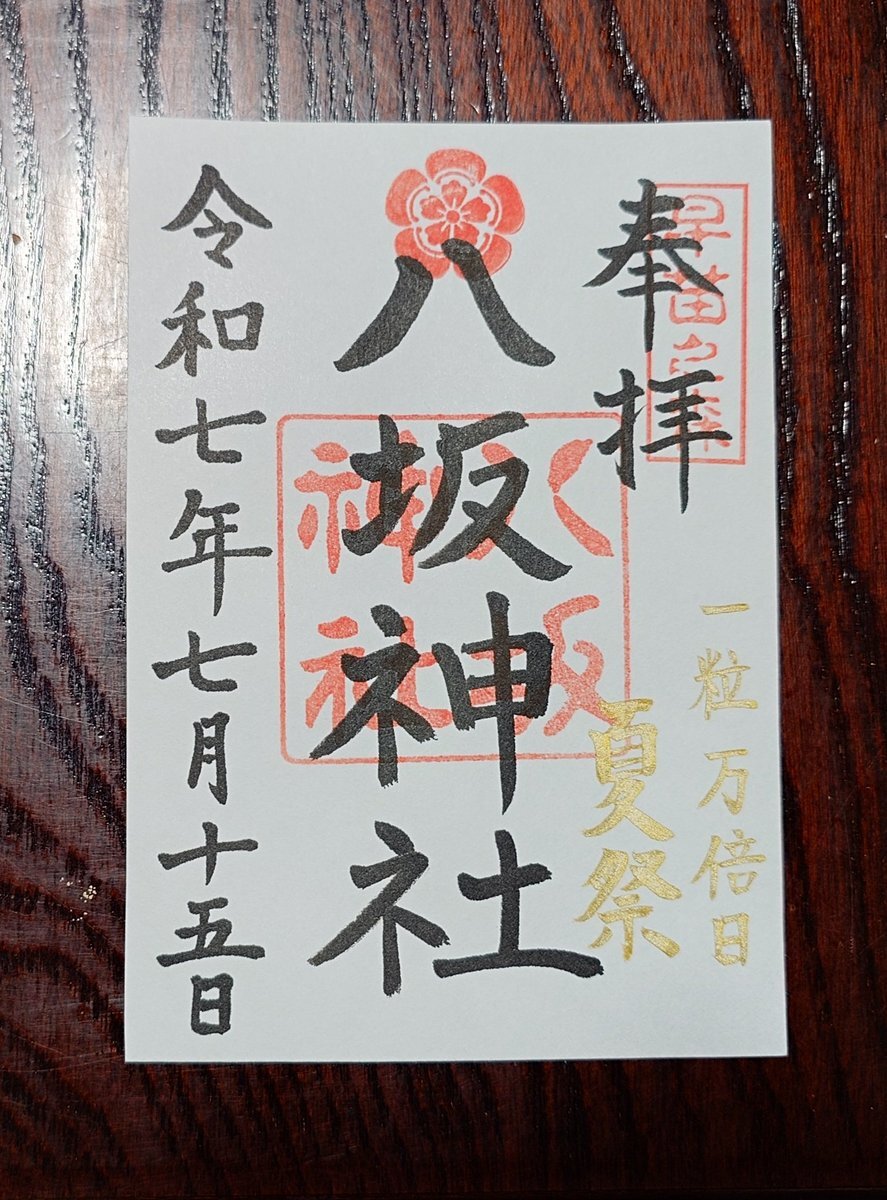 奉拝
一粒万倍日
夏祭
八坂神社
八坂
神社
令和七年七月十五日